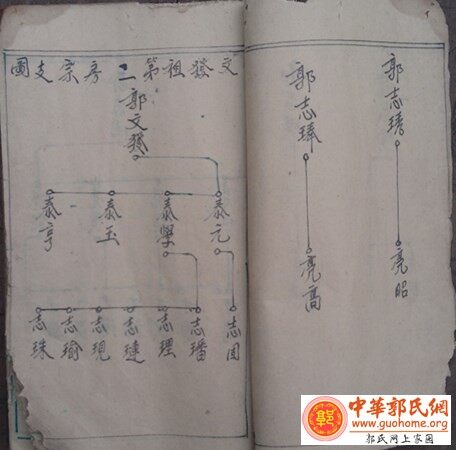 文發祖第二房宗支圖
郭文發
泰元
泰學
泰玉
泰亨
志固
志璠
志理
志璉
志現
志瑜
志珠
郭志
亮昭
郭志臻
亮高
中華郭氏網
www.guohome.org
郭氏网上家園